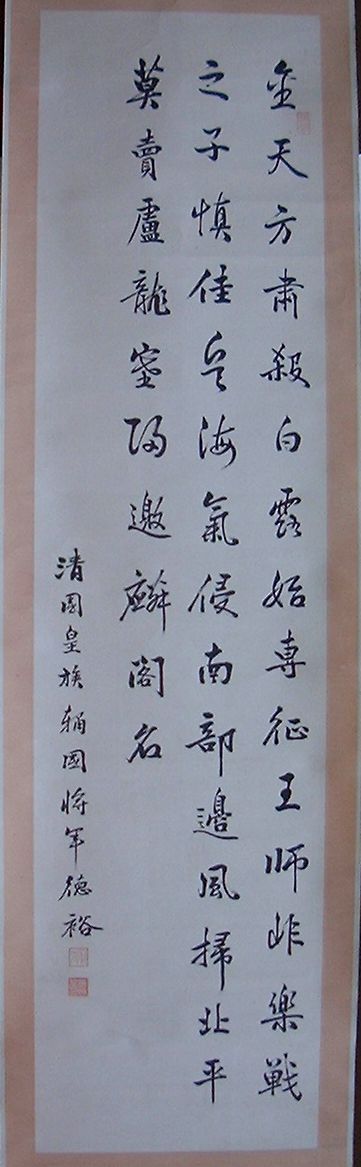 金天方肅殺白露始專征王師非樂戰
之子慎佳兵海氣侵南部邊風掃北平
莫賣盧龍塞歸邀麟閣名
清國皇族輔國將軍德裕